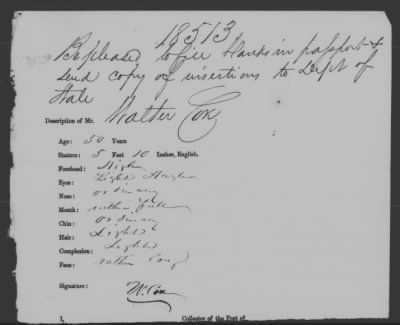 18513
Be pleased to fill blanks in passport &
send copy of insertions to Dept of
State
Description of Mr. Walter Cox
Age: 50 Years
Stature: 5 Feet 10 Inches, English,
Forehead: High
Eyes: Light Hazel
Nose: ordinary
Mouth: rather full
Chin: ordinary
Hair: Light
Complexion: Light
Face: rather Long
Signature: W. Cox
I, Collector of the Port of